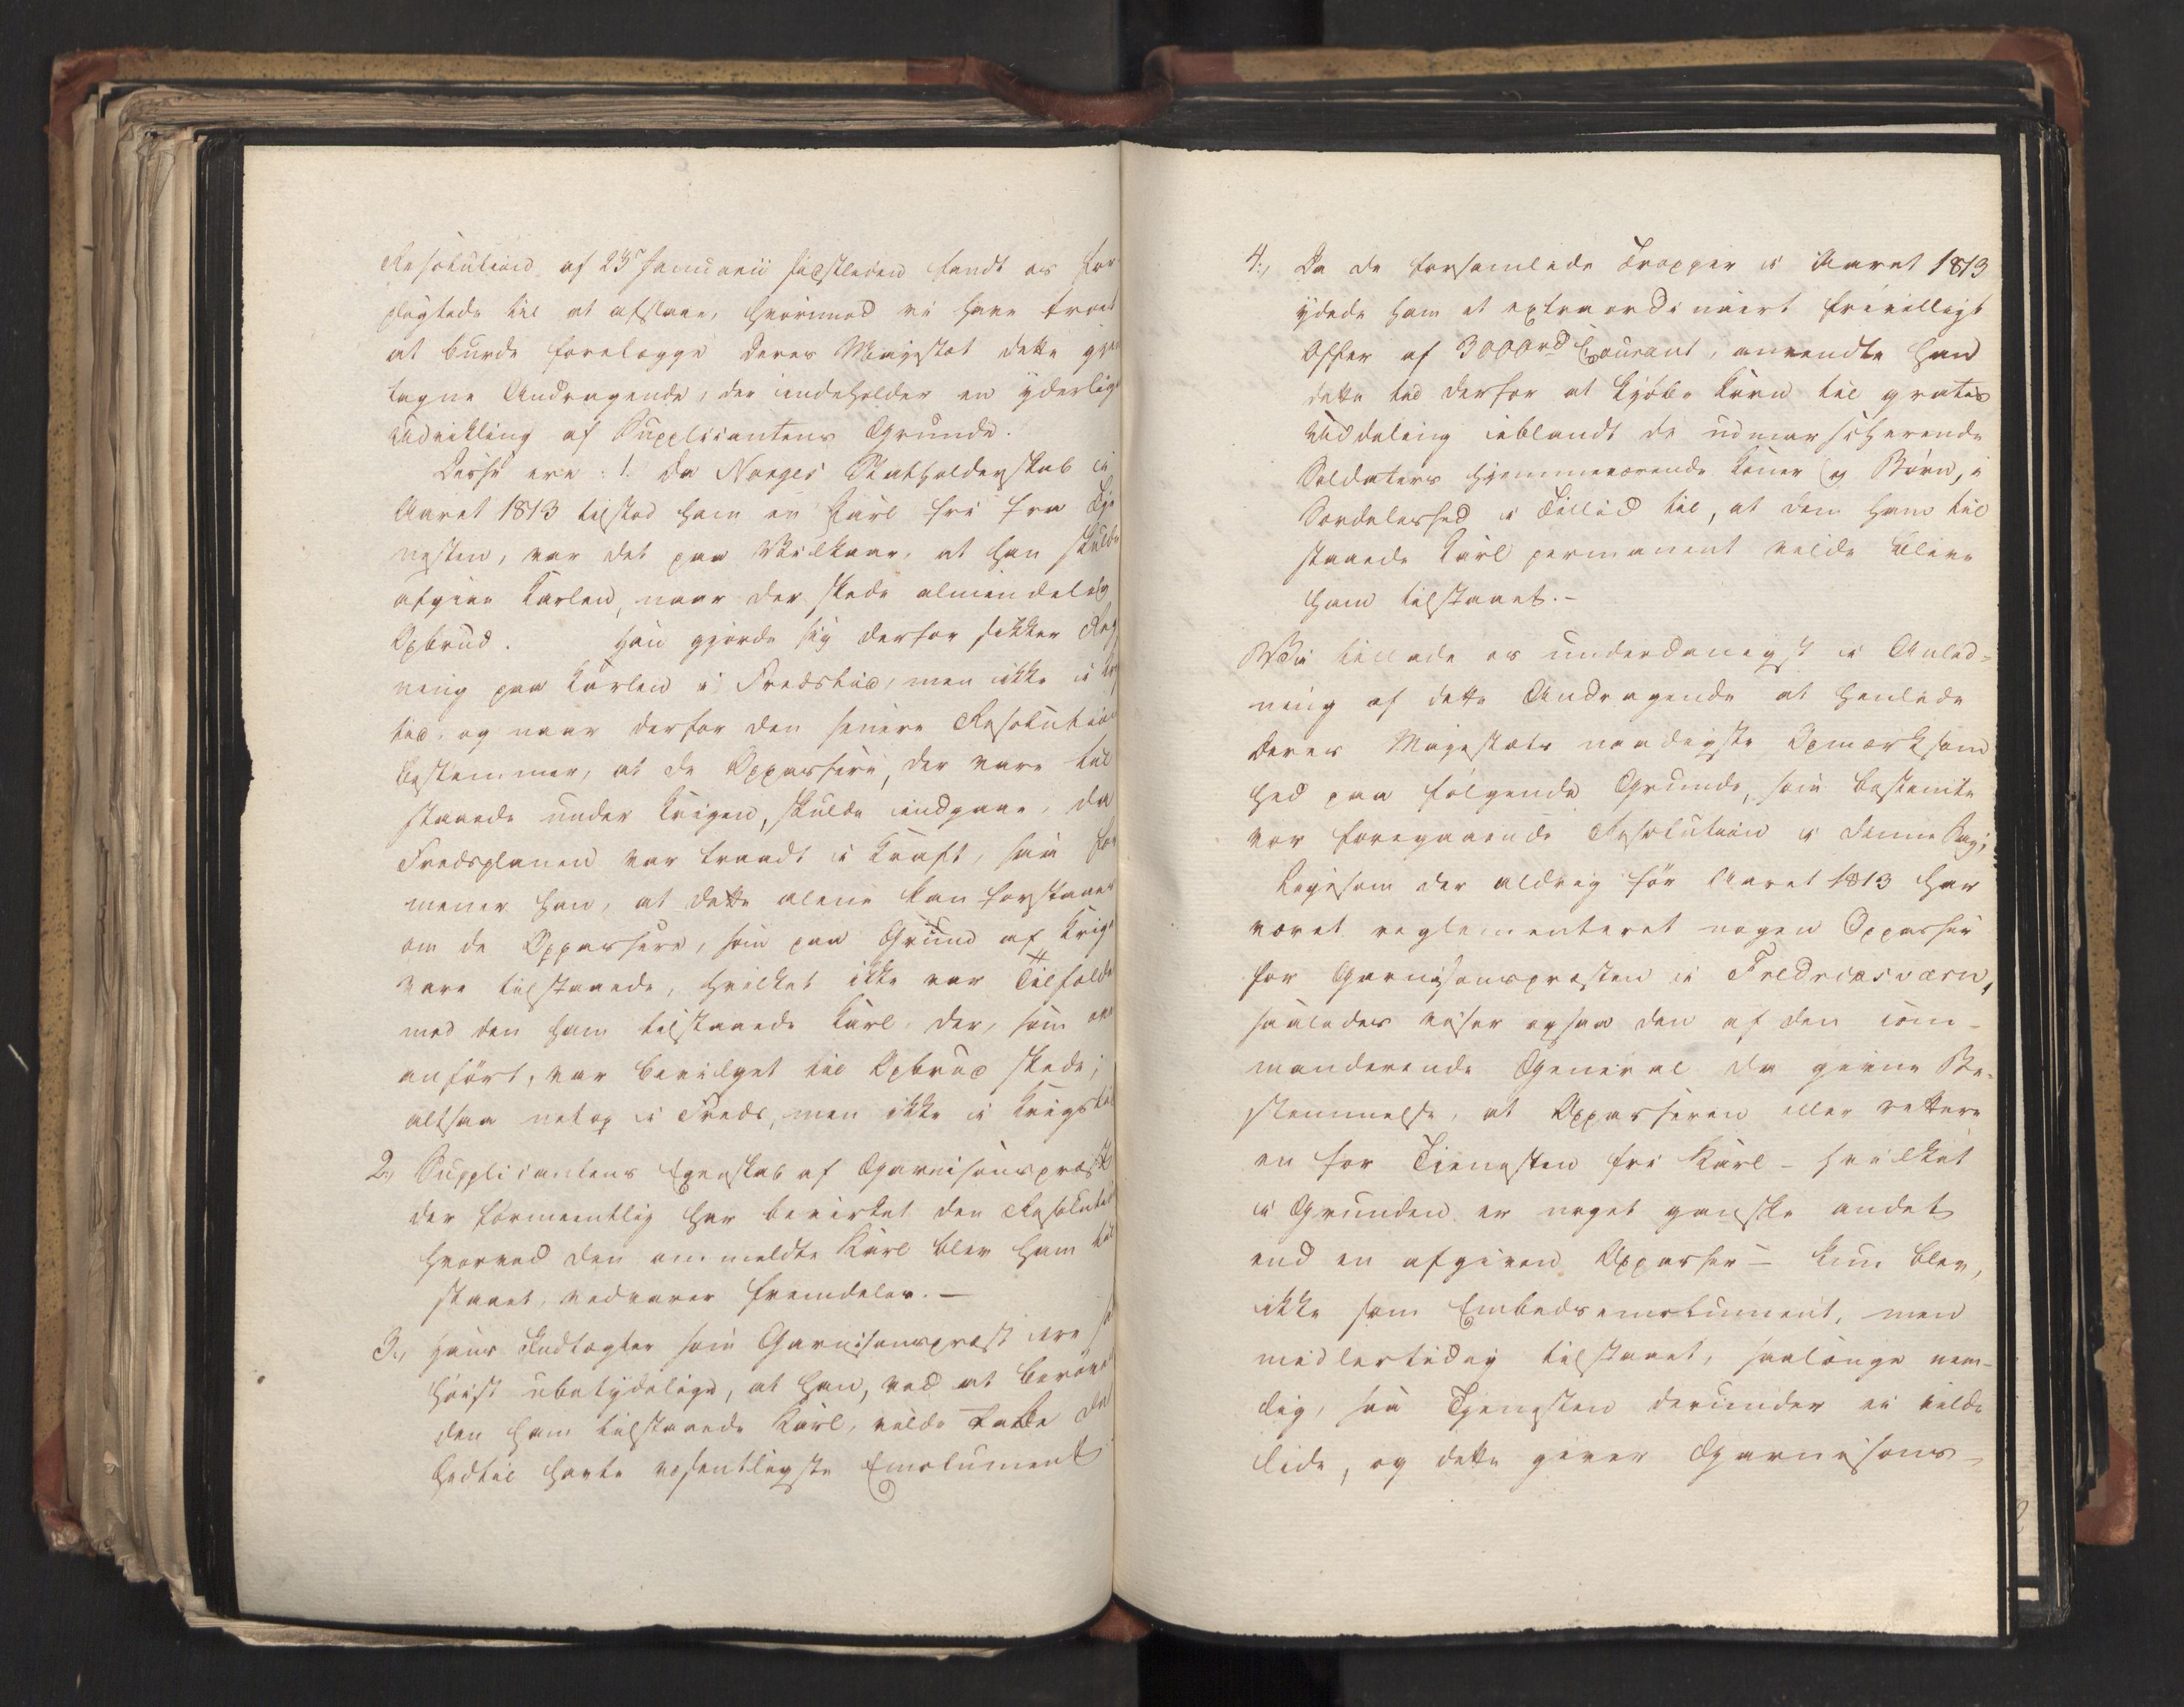 Resolution af 23de Januarii sidstleden fandt os for-
pligtede til at afslaae, hvormed vi have troet
at burde forelægge Deres Majestæt dette gjen
tagne Andragende, der indeholder en yderlig
Udvikling af Supplicantens Grunde.
Disse ere: 1. Da Norges Statholderskab i
Aaret 1813 tilstod ham en Karl fri fra Tje
nesten, var det paa Vilkaar, at han skulde
afgive Karlen, naar der skede almindelig
Opbrud. Han gjorde sig derfor sikker Reg
ning paa Karlen i Fredstid, men ikke i Krigs
tid, og naar derfor den senere Resolution
bestemmer, at de Oppassere, der vare til
staaede under Krigen, skulde indgaae, da
Fredsplanen var traadt i Kraft, saa for
mener han, at dette alene kan forstaaes
om de Oppassere, som paa Grund af Krigen
vare tilstaaede, hvilket ikke var Tilfældet
med den ham tilstaaede Karl, der, som oven
anført, var bevilget til Opbrud skede;
altsaa netop i Freds, men ikke i Krigstid
2., Supplicantens Egenskab af Garnisonspræst
der formeentlig har bevirket den Resolution
hvorved den ommeldte Karl blev ham til
staaet, vedvarer fremdeles. —
3., Hans Indtægter som Garnisonspræst ere saa
høist ubetydelige, at han, ved at berøves
den ham tilstaaede Karl, vilde tabe det
hidtil havte væsentligste Emolument
4., Da de forsamlede Tropper i Aaret 1813
ydede ham et extraordinairt frivilligt
Offer af 3000rd Courant, anvendte han
dette til derfor at kjøbe Korn til gratis
Uddeling iblandt de udmarscherende
Soldaters hjemmeværende Koner og Børn, i
Særdeleshed i Tillid til, at den ham til
staaede Karl permanent vilde blive
ham tilstaaet. —
Vi tillade os underdanigst i Anled-
ning af dette Andragende at henlede
Deres Majestæts naadigste Opmærksom
hed paa følgende Grunde, som bestemte
vor foregaaende Resolution i denne Sag;
Ligesom der aldrig før Aaret 1813 har
været reglementeret nogen Oppasser
for Garnisonspræsten i Fredriksværn,
saaledes viser ogsaa den af den com-
manderende General da givne Be-
stemmelse, at Oppasseren eller rettere
en for Tienesten fri Karl — hvilket
i Grunden er noget ganske andet
end en afgiven Oppasser — kun blev,
ikke som Embedsemolument, men
midlertidig tilstaaet, saalænge nem-
lig, som Tjenesten derunder ei vilde
lide, og dette giver Garnisons-